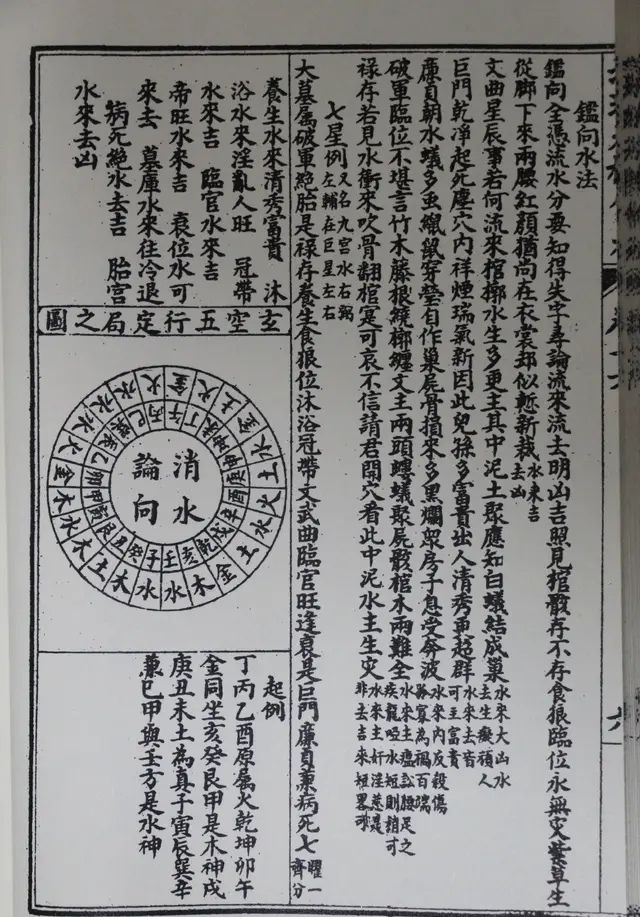 鑑向水法
鑑向全憑流水分要知得失字尋論流來流去明凶吉照見棺骸存不存食狼臨位永無災紫草生
從腳下來兩腰紅顏猶尚在衣裳却似慙新栽水來吉去凶
文曲星辰事若何流來棺槨水生多更主其中泥土聚應知白蟻結成巢水來大凶水去生癡頑人
巨門乾净起死塵穴內祥煙瑞氣新因此兒孫多富貴出人清秀更超群水來去皆可主富貴
廉貞朝水蟻多虫蠟鼠穿塋自作巢屍骨損來多黑爛衆房子息受奔波水來內反殺傷孤寡為禍百端
破軍臨位不堪言竹木藤根繞槨纏文主兩頭螻蟻聚屍骸棺木兩難全水來主瘟訟腰足之疾聾啞水短則稍可
祿存若見水衝來吹骨翻棺寔可哀不信請君開穴看此中泥水主生灾水來主奸淫惹是非去吉來短畧可
七星例又名九宮水右弼左輔在巨星左右
大墓屬破軍絕胎是祿存養生食狼位沐浴冠帶文武曲臨官旺逢衰是巨門廉貞兼病死七曜一齊分
養生水來清秀富貴 沐
浴水來淫亂人旺 冠帶
水來吉 臨官水來吉
帝旺水來吉 衰位水可
來去 墓庫水來往冷退
病死絕水去吉 胎宮
水來去凶
玄空五行定局之圖
消水
論向
午丁未坤申庚酉辛戌乾亥壬子癸丑艮寅甲卯乙辰巽巳丙
金火土金水土火水土金木水水木土木水木金火水水水火
起例
丁丙乙酉原屬火乾坤卯午
金同坐亥癸艮甲是木神戌
庚丑未土為真子寅辰巽辛
兼巳甲與壬方是水神